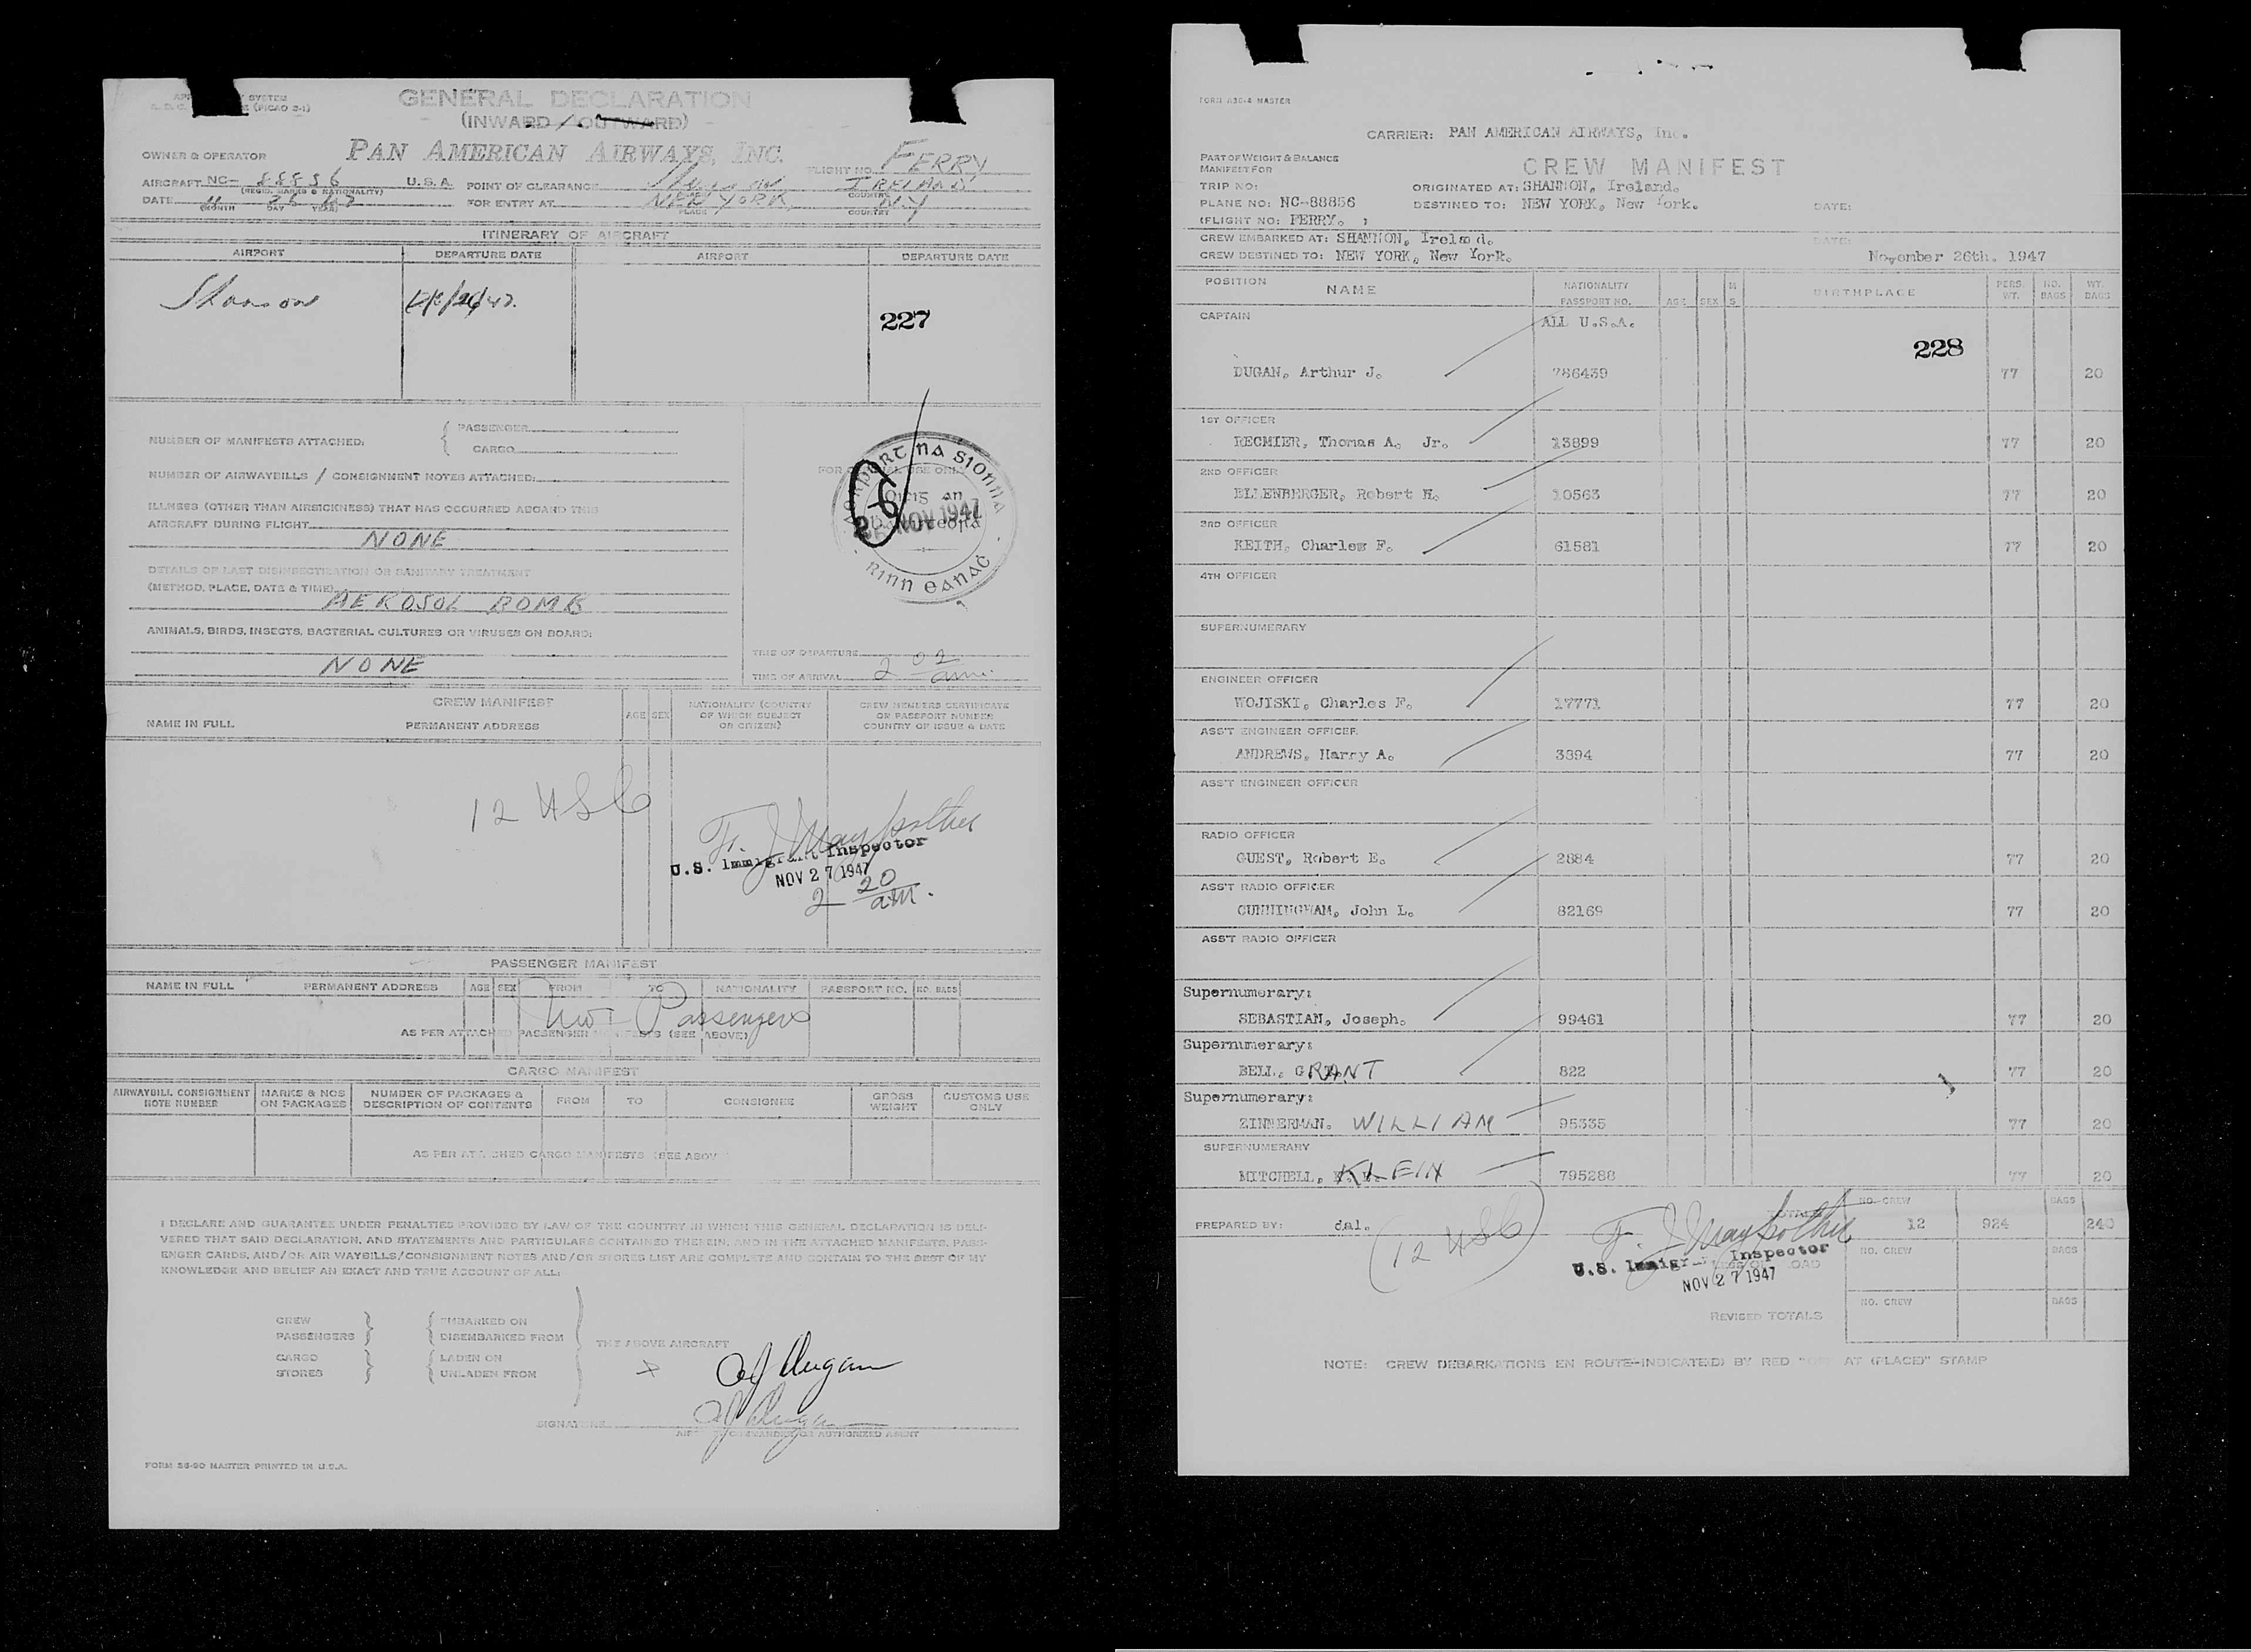 GENERAL DECLARATION
(INWARD / OUTWARD)
OWNER & OPERATOR PAN AMERICAN AIRWAYS, INC. FLIGHT NO. FERRY
AIRCRAFT NC- 88856 U.S.A. POINT OF CLEARANCE Shannon IRELAND
(REGIS. MARKS & NATIONALITY) COUNTRY
DATE 11 26 47 FOR ENTRY AT NEW YORK, N.Y
(MONTH DAY YEAR) PLACE COUNTRY
ITINERARY OF AIRCRAFT
AIRPORT DEPARTURE DATE AIRPORT DEPARTURE DATE
Shannon /26/47.
227
NUMBER OF MANIFESTS ATTACHED: PASSENGER
CARGO
NUMBER OF AIRWAYBILLS / CONSIGNMENT NOTES ATTACHED:
FOR OFFICIAL USE ONLY
AORPORT NA SIONNA
26 NOV 1947
RINN EANAC
ILLNESS (OTHER THAN AIRSICKNESS) THAT HAS OCCURRED ABOARD THIS
AIRCRAFT DURING FLIGHT
NONE
DETAILS OF LAST DISINSECTIZATION OR SANITARY TREATMENT
(METHOD, PLACE, DATE & TIME)
AEROSOL BOMB
ANIMALS, BIRDS, INSECTS, BACTERIAL CULTURES OR VIRUSES ON BOARD:
NONE
TIME OF DEPARTURE
TIME OF ARRIVAL 2 02 am.
CREW MANIFEST
NAME IN FULL PERMANENT ADDRESS AGE SEX NATIONALITY (COUNTRY OF WHICH SUBJECT OR CITIZEN) CREW MEMBERS CERTIFICATE OR PASSPORT NUMBER COUNTRY OF ISSUE & DATE
12 USC
U.S. Immigrant Inspector
NOV 27 1947
2 20 am.
PASSENGER MANIFEST
NAME IN FULL PERMANENT ADDRESS AGE SEX FROM TO NATIONALITY PASSPORT NO. NO. BAGS
No Passengers
AS PER ATTACHED PASSENGER MANIFESTS (SEE ABOVE)
CARGO MANIFEST
AIRWAYBILL CONSIGNMENT NOTE NUMBER MARKS & NOS ON PACKAGES NUMBER OF PACKAGES & DESCRIPTION OF CONTENTS FROM TO CONSIGNEE GROSS WEIGHT CUSTOMS USE ONLY
AS PER ATTACHED CARGO MANIFESTS (SEE ABOVE
I DECLARE AND GUARANTEE UNDER PENALTIES PROVIDED BY LAW OF THE COUNTRY IN WHICH THIS GENERAL DECLARATION IS DELI-
VERED THAT SAID DECLARATION, AND STATEMENTS AND PARTICULARS CONTAINED THEREIN, AND IN THE ATTACHED MANIFESTS, PASS-
ENGER CARDS, AND/OR AIR WAYBILLS/CONSIGNMENT NOTES AND/OR STORES LIST ARE COMPLETE AND CONTAIN TO THE BEST OF MY
KNOWLEDGE AND BELIEF AN EXACT AND TRUE ACCOUNT OF ALL:
CREW EMBARKED ON
PASSENGERS DISEMBARKED FROM
THE ABOVE AIRCRAFT
CARGO LADEN ON
STORES UNLADEN FROM
X AJ Dugan
SIGNATURE AJ Dugan
AIRCRAFT COMMANDER OR AUTHORIZED AGENT
FORM 36-90 MASTER PRINTED IN U.S.A.
FORM A36-4 MASTER
CARRIER: PAN AMERICAN AIRWAYS, Inc.
PART OF WEIGHT & BALANCE
MANIFEST FOR
CREW MANIFEST
TRIP NO: ORIGINATED AT: SHANNON, Ireland.
PLANE NO: NC-88856 DESTINED TO: NEW YORK, New York. DATE:
(FLIGHT NO: FERRY. )
CREW EMBARKED AT: SHANNON, Ireland. DATE:
CREW DESTINED TO: NEW YORK, New York. November 26th. 1947
POSITION NAME NATIONALITY PASSPORT NO. AGE SEX M S BIRTHPLACE PERS. WT. NO. BAGS WT. BAGS
CAPTAIN ALL U.S.A.
228
DUGAN, Arthur J. 786439 77 20
1ST OFFICER
RECMIER, Thomas A. Jr. 13899 77 20
2ND OFFICER
ELLENBERGER, Robert H. 10563 77 20
3RD OFFICER
KEITH, Charles F. 61581 77 20
4TH OFFICER
SUPERNUMERARY
ENGINEER OFFICER
WOJISKI, Charles F. 17771 77 20
ASS'T ENGINEER OFFICER
ANDREWS, Harry A. 3894 77 20
ASS'T ENGINEER OFFICER
RADIO OFFICER
GUEST, Robert E. 2884 77 20
ASS'T RADIO OFFICER
CUNNINGHAM, John L. 82169 77 20
ASS'T RADIO OFFICER
Supernumerary:
SEBASTIAN, Joseph. 99461 77 20
Supernumerary:
BELL, GRANT 822 77 20
Supernumerary:
ZINNERMAN. WILLIAM 95335 77 20
SUPERNUMERARY
MITCHELL, KLEIN 795288 77 20
PREPARED BY: dal. TOTALS NO. CREW 12 924 BAGS 240
(12 USC)
U.S. Immigrant Inspector
NOV 27 1947
NO. CREW BAGS
REVISED TOTALS NO. CREW BAGS
NOTE: CREW DEBARKATIONS EN ROUTE-INDICATE(D) BY RED "OFF AT (PLACE)" STAMP